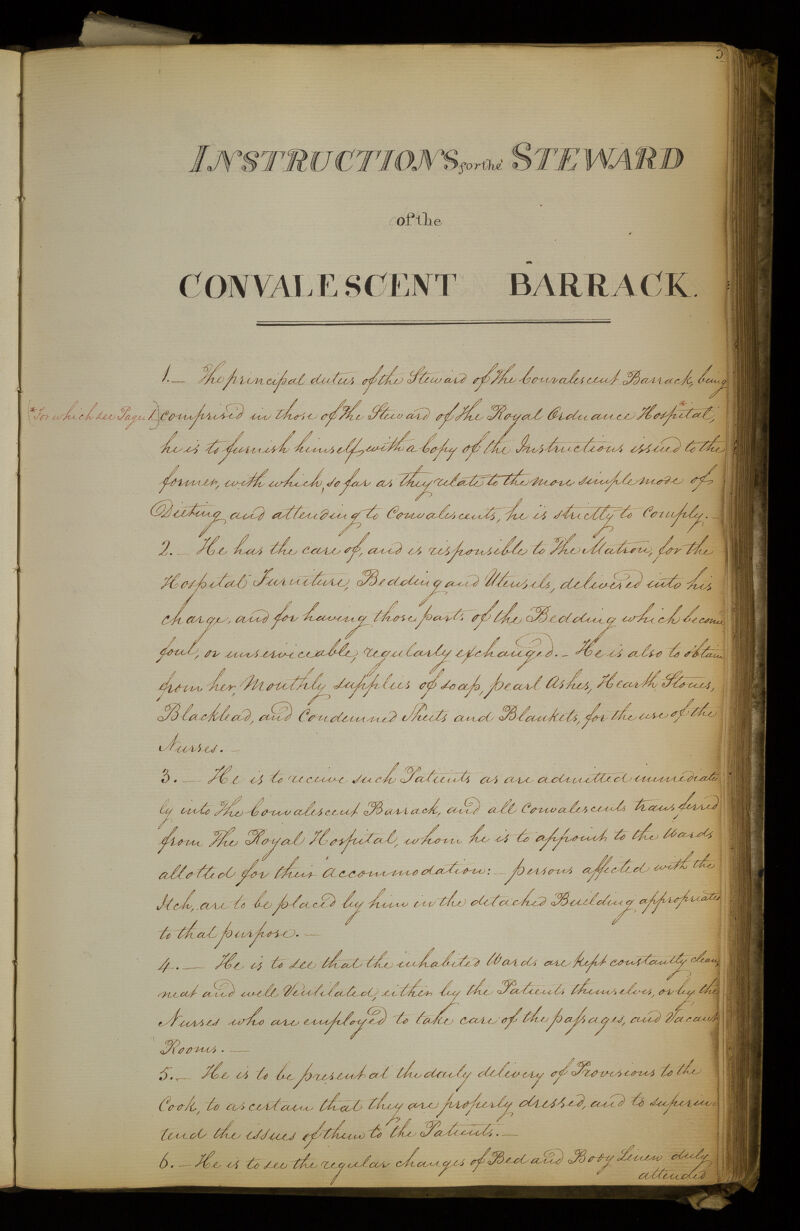 5
INSTRUCTIONS for the STEWARD
of the
CONVALESCENT BARRACK.
1.— The principal duties of the Steward of The Convalescent Barrack, being
(*For which see Page 1.) comprised in those of The Steward of The Royal Ordnance Hospital,*
he is to furnish himself with a Copy of the Instructions issued to the
former, with which, so far as they relate to the more simple mode of
Dieting and attending to Convalescents, he is strictly to Comply.—
2.— He has the care of, and is responsible to The Matron, for the
Hospital Furniture, Bedding and Utensils, delivered into his
charge, and for having those parts of the Bedding which become
foul, or unserviceable, regularly exchanged.— He is also to obtain
from her, Monthly supplies of soap, pearl Ashes, Hearth Stones,
Blacklead, and Condemned Sheets and Blankets, for the use of the
Nurses.—
3.— He is to receive such Patients as are admitted immediate
ly into The Convalescent Barrack, and all Convalescents transferred
from The Royal Hospital, whom he is to appoint to the Wards
allotted for their accommodation:— persons affected with the
Itch, are to be placed by him in the detached Building appropriated
to that purpose.—
4.— He is to see that the inhabited Wards are kept constantly clean,
neat and well Ventilated, either by the Patients themselves, or by the
Nurses who are employed to take care of the passages, and Vacant
Rooms.—
5.— He is to be present at the daily delivery of Provisions to the
Cook, to ascertain that they are properly dressed, and to superin
tend the issues of them to the Patients.—
6.— He is to see the regular changes of Bed and Body Linen duly
attended